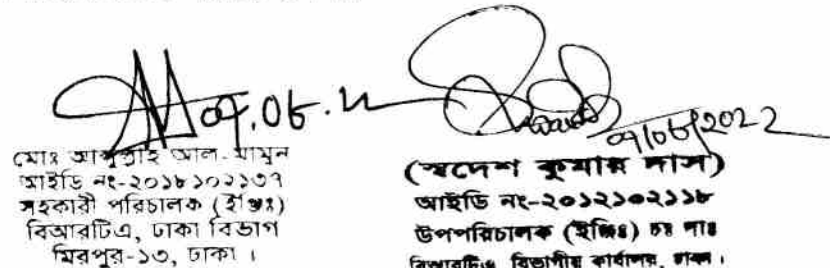 ০৭.০৮.২২
মোঃ আব্দুল্লাহ আল-মামুন
আইডি নং-২০১৮১০২১৩৭
সহকারী পরিচালক (ইঞ্জিঃ)
বিআরটিএ, ঢাকা বিভাগ
মিরপুর-১৩, ঢাকা ।
০৭/০৮/2022
(স্বদেশ কুমার দাস)
আইডি নং-২০১২১০২১১৮
উপপরিচালক (ইঞ্জিঃ) চঃ দাঃ
বিআরটিএ, বিভাগীয় কার্যালয়, ঢাকা ।